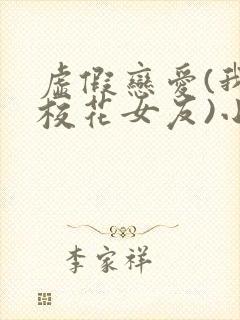 虛假戀愛(我
校花女友)小
李家祥